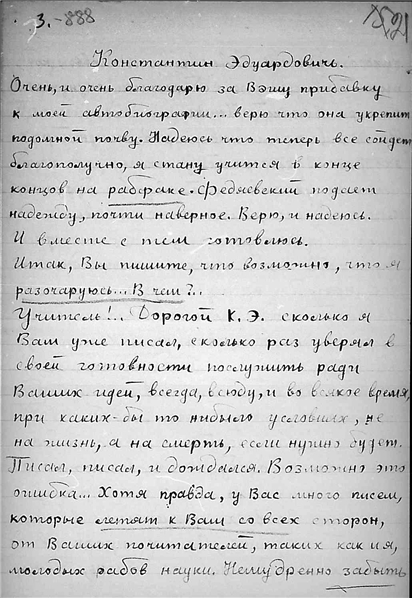 3. -888
Константин Эдуардовичъ.
Очень, и очень благодарю за Вашу прибавку
к моей автобиографии... верю что она укрепит
подомной почву. Надеюсь что теперь все сойдет
благополучно, я стану учится в конце
концов на рабфаке. Федяевский подает
надежду, почти наверное. Верю, и надеюсь.
И вместе с тем готовлюсь.
Итак, Вы пишите, что возможно, что я
разочаруюсь... В чем?..
Учитель!.. Дорогой К. Э. сколько я
Вам уже писал, сколько раз уверял в
своей готовности послужить ради
Ваших идей, всегда, всюду, и во всякое время,
при каких-бы то нибыло условиях, не
на жизнь, а на смерть, если нужно будет.
Писал, писал, и дождался. Возможно это
ошибка... Хотя правда, у Вас много писем,
которые летят к Вам со всех сторон,
от Ваших почитателей, таких как и я,
молодых рабов науки. Немудренно забыть